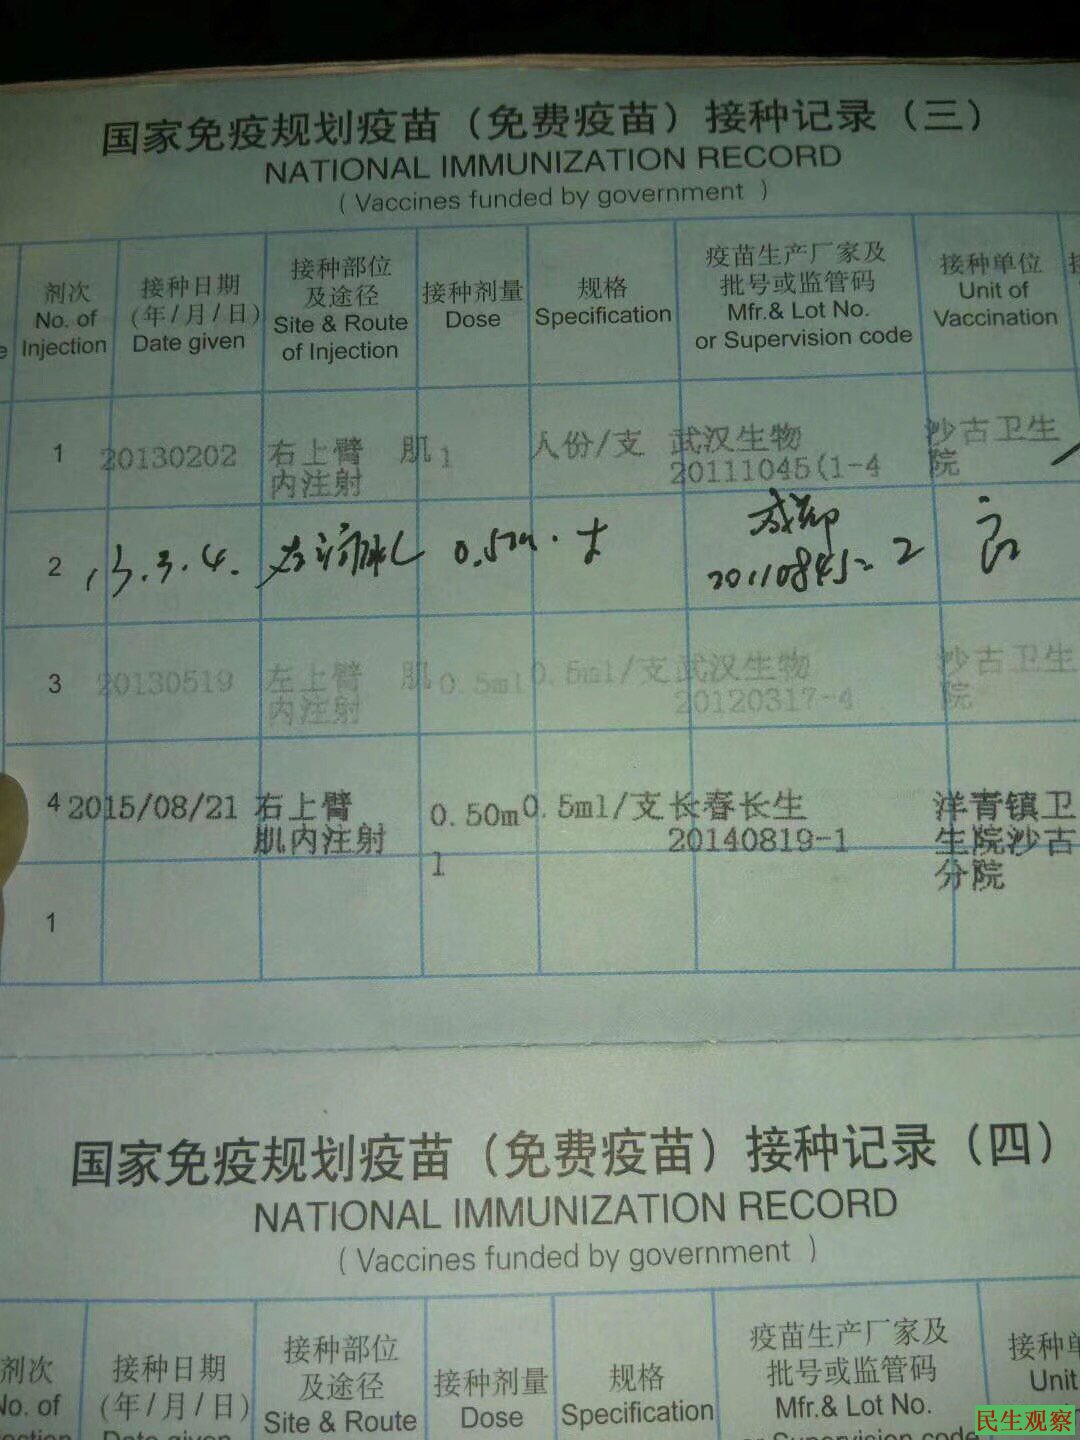 国家免疫规划疫苗（免费疫苗）接种记录（三）
NATIONAL IMMUNIZATION RECORD
( Vaccines funded by government )
剂次
No. of
Injection
接种日期
(年/月/日)
Date given
接种部位
及途径
Site & Route
of Injection
接种剂量
Dose
规格
Specification
疫苗生产厂家及
批号或监管码
Mfr.& Lot No.
or Supervision code
接种单位
Unit of
Vaccination
1 20130202 右上臂 肌 1 人份/支 武汉生物 沙古卫生
内注射 20111045(1-4 院
2 13.3.4. 0.5 成都
20110845 2
3 20130519 左上臂 肌 0.5ml 0.5ml/支 武汉生物 沙古卫生
内注射 20120317-4 院
4 2015/08/21 右上臂 0.50m 0.5ml/支 长春长生 洋青镇卫
肌内注射 l 20140819-1 生院沙古
分院
1
国家免疫规划疫苗（免费疫苗）接种记录（四）
NATIONAL IMMUNIZATION RECORD
( Vaccines funded by government )
剂次
No. of
接种日期
(年/月/日)
Date given
接种部位
及途径
Site & Route
接种剂量
Dose
规格
Specification
疫苗生产厂家及
批号或监管码
Mfr.& Lot No.
or Supervision code
接种单
Unit
民生观察